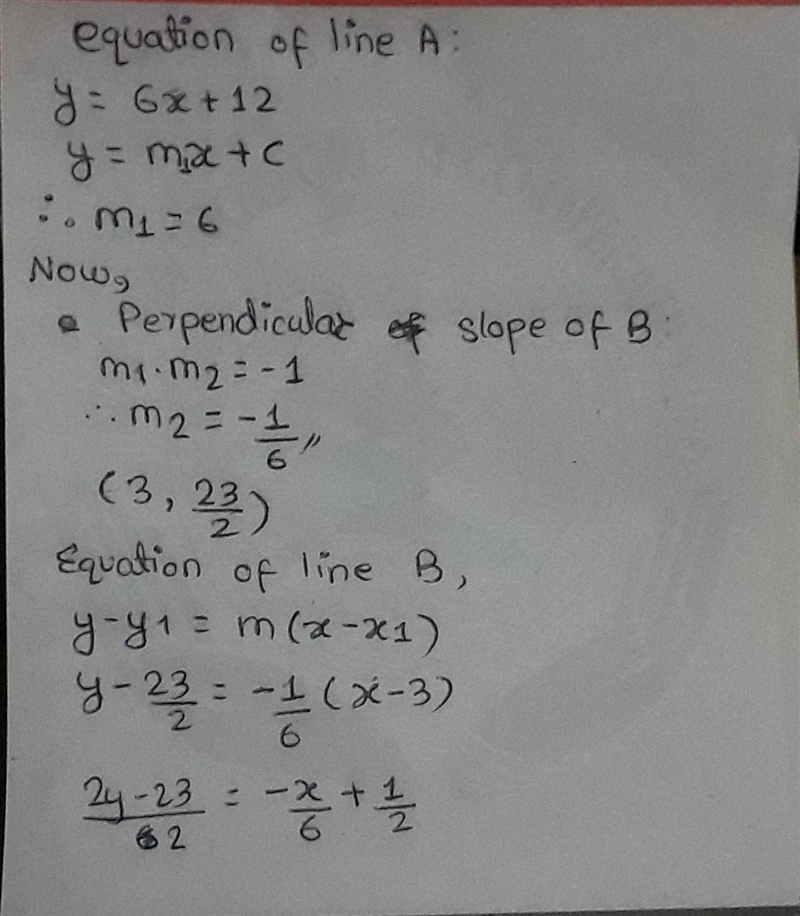 equation of line A:
y = 6x + 12
y = m₁x + c
∴ m₁ = 6
Now,
• Perpendicular slope of B:
m₁ · m₂ = -1
∴ m₂ = -1/6 //
(3, 23/2)
Equation of line B,
y - y1 = m(x - x1)
y - 23/2 = -1/6 (x - 3)
(2y - 23)/2 = -x/6 + 1/2